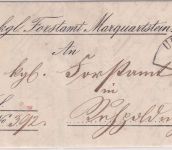 kgl. Forstamt Marquartstein
An
kgl. Forstamt
in
No 392